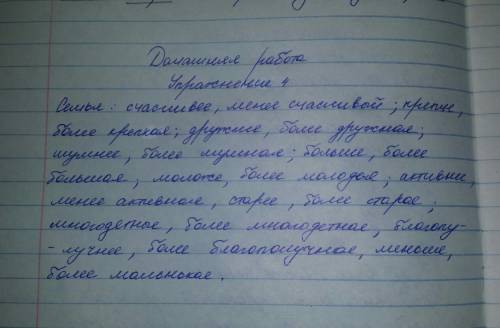 Домашняя работа
Упражнение 4
Семья: счасливее, менее счасливый; крепче,
более крепкая; дружше, более дружная;
шумнее, более шумная; больше, более
большая, моложе, более молодая; активнее,
менее активная, старее, более старая;
многодетнее, более многодетная, благопу-
-лучнее, более благополучная, меньше,
более маленькая.